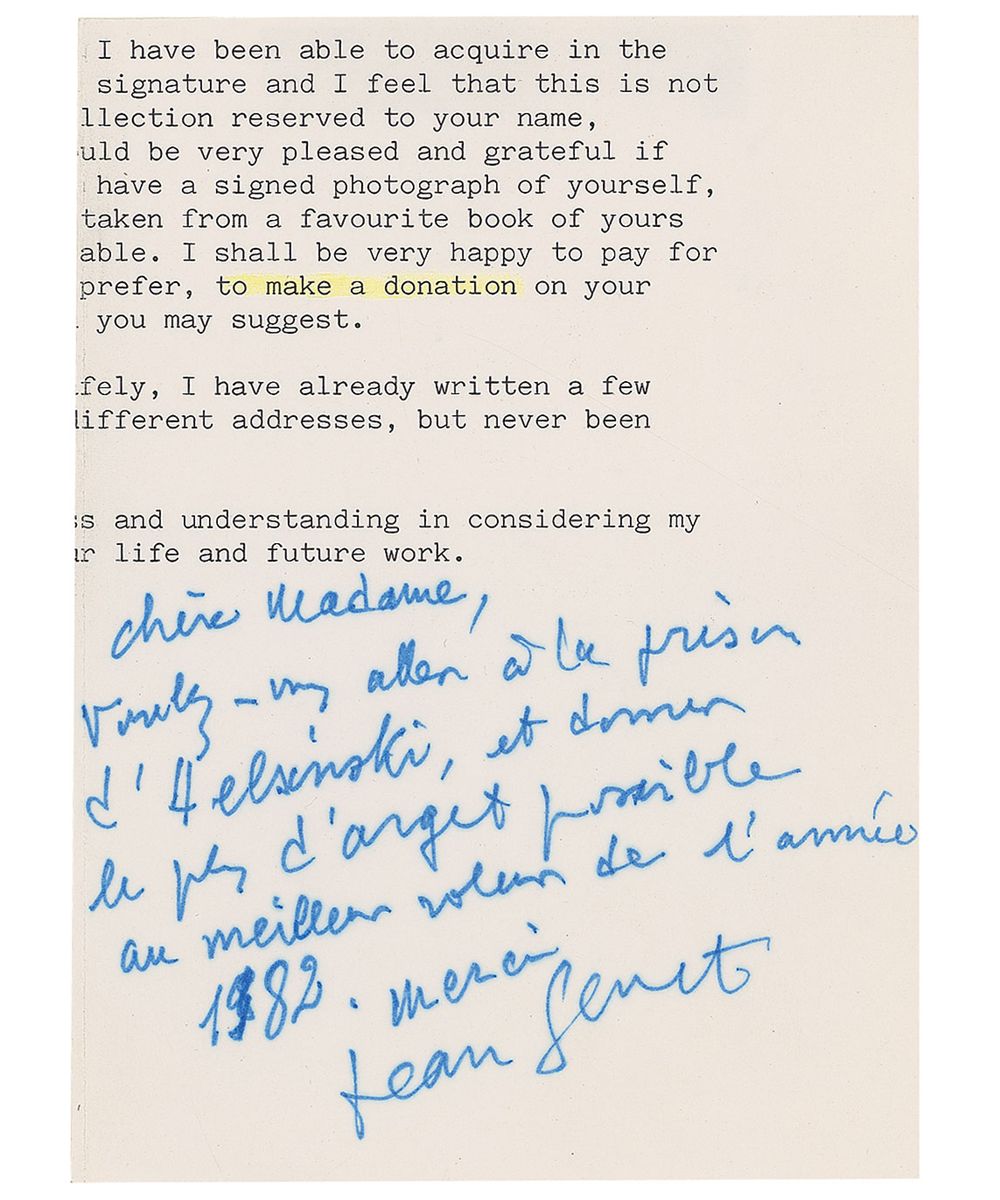 I have been able to acquire in the
signature and I feel that this is not
llection reserved to your name,
uld be very pleased and grateful if
have a signed photograph of yourself,
taken from a favourite book of yours
able. I shall be very happy to pay for
prefer, to make a donation on your
you may suggest.
fely, I have already written a few
different addresses, but never been
ss and understanding in considering my
ur life and future work.
chère Madame,
Voulez-vous aller à la prison
d'Helsinski, et donner
le plus d'arget possible
au meilleur voleur de l'année
1982. merci
Jean Genet